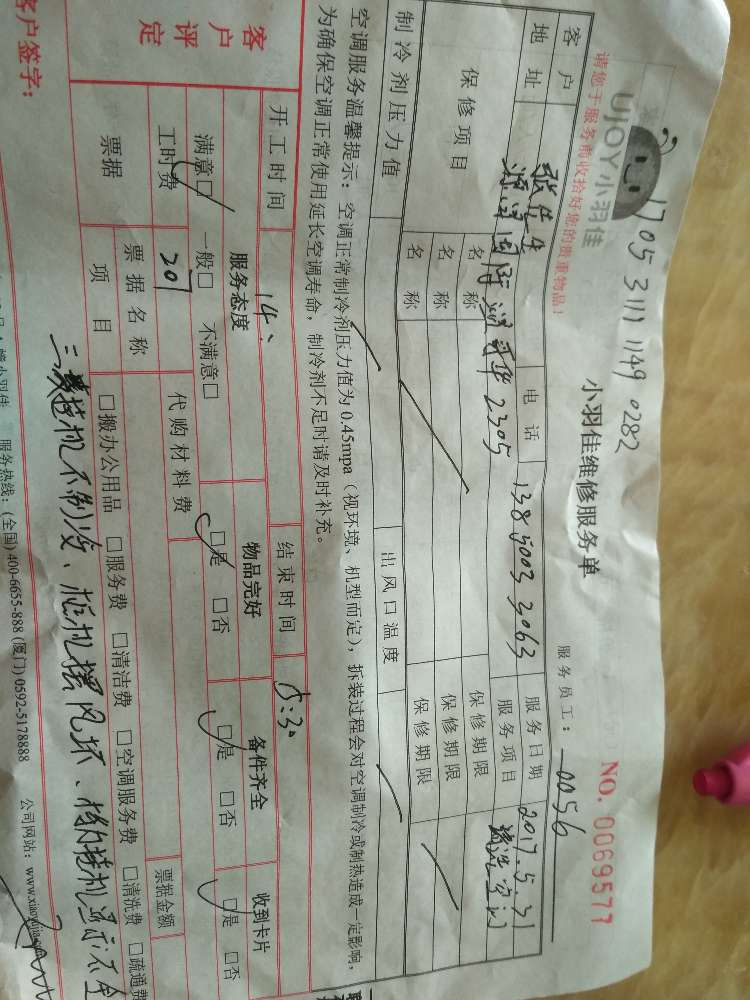 1705 3111 1149 0282
UJOY小羽佳
请您于服务前收拾好您的贵重物品!
小羽佳维修服务单
NO. 0069577
服务员工: 0056
客户 张先生 电话 138 5003 3063 服务日期 2017.5.31
地址 2305 服务项目 清洗空调
保修项目 名称 保修期限
名称 保修期限
名称 保修期限
制冷剂压力值 出风口温度
空调服务温馨提示:空调正常制冷剂压力值为0.45mpa(视环境、机型而定),拆装过程会对空调制冷或制热造成一定影响,
为确保空调正常使用延长空调寿命,制冷剂不足时请及时补充。
开工时间 14: 结束时间 15:30
客户评定 服务态度 物品完好 备件齐全 收到卡片
满意□ 一般□ 不满意□ □是 □否 □是 □否 □是 □否
工时费 207 代购材料费
票据 票据名称 票据金额
项目 □搬办公用品 □服务费 □清洁费 □空调服务费 □清洗费 □疏通费
挂机不制冷、柜机摆风坏、
客户签字:
服务热线:(全国)400-6655-888(厦门)0592-5178888 公司网站:www.xiaoyujia.com